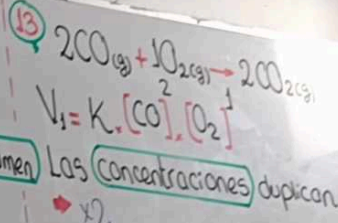 13
2CO(g) + 1O2(g) → 2CO2(g)
V1 = K.[CO]^2.[O2]^1
men Las concentraciones duplican
→ x2